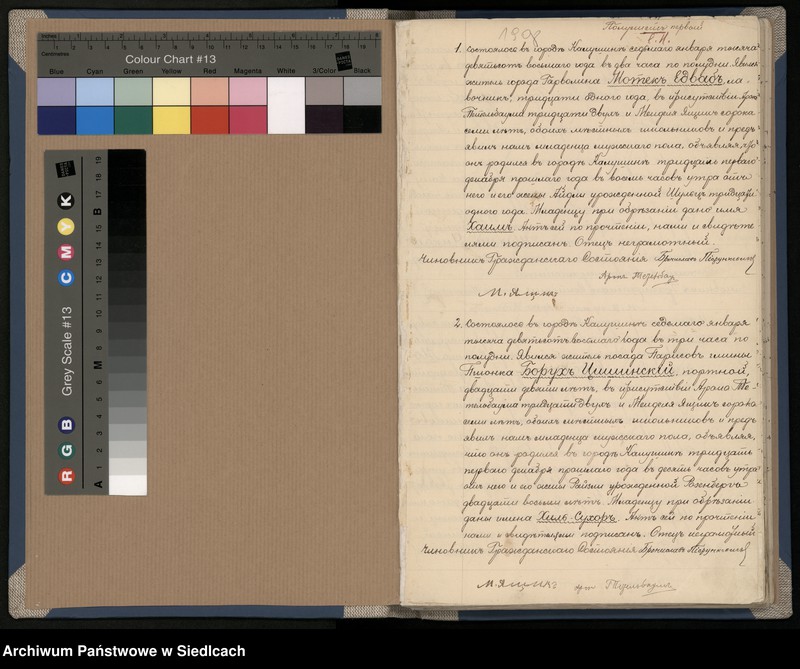 Inches
Centimetres
Colour Chart #13
Blue Cyan Green Yellow Red Magenta White 3/Color Black
Grey Scale #13
R G B
C M Y K
A 1 2 3 4 5 6 M 8 9 10 11 12 13 14 15 B 17 18 19
1908
1. Состоялось въ городѣ Калушинѣ седьмаго января тысяча
девятьсотъ восьмаго года въ два часа по полудни. Явился
житель города Гарволина Мотекъ Едвабъ, ла-
вочникъ, тридцати одного года, въ присутствіи
тридцати двухъ и Менделя Ящинъ сорока
семи лѣтъ, обоихъ мѣстныхъ школьниковъ и предъ-
явилъ намъ младенца мужескаго пола, объявляя, что
онъ родился въ городѣ Калушинѣ тридцать перваго
декабря прошлаго года въ восемь часовъ утра отъ
него и его жены урожденной тридцати
одного года. Младенцу при обрѣзаніи дано имя
Хаимъ. Актъ сей по прочтеніи, нами и свидѣте-
лями подписанъ. Отецъ неграмотный.
Чиновникъ Гражданскаго Состоянія
М. Ящинъ
2. Состоялось въ городѣ Калушинѣ седьмаго января
тысяча девятьсотъ восьмаго года въ три часа по
полудни. Явился житель посада Парисовъ гмины
Борухъ Цишинскій, портной,
двадцати девяти лѣтъ, въ присутствіи
тридцати двухъ и Менделя Ящинъ сорока
семи лѣтъ, обоихъ мѣстныхъ школьниковъ и предъ-
явилъ намъ младенца мужескаго пола, объявляя,
что онъ родился въ городѣ Калушинѣ тридцать
перваго декабря прошлаго года въ десять часовъ утра
отъ него и его жены урожденной Розенбергъ
двадцати восьми лѣтъ. Младенцу при обрѣзаніи
даны имена Хиль-Сухоръ. Актъ сей по прочтеніи
нами и свидѣтелями подписанъ. Отецъ неграмотный
Чиновникъ Гражданскаго Состоянія
М. Ящинъ
Archiwum Państwowe w Siedlcach